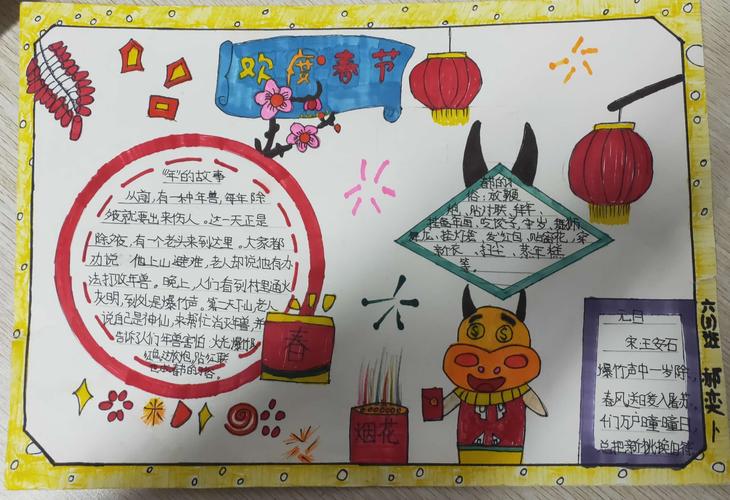 欢度春节
"年"的故事
从前,有一种年兽,每年除
夜就要出来伤人。这一天正是
除夜,有一个老头来到这里。大家都
劝说他上山避难,老人却说他有办
法打败年兽。晚上,人们看到村里通火
灰明,到处是爆竹声。第二天下山,老人
说自己是神仙,来帮忙治灭年兽,并
告诉人们年兽害怕火光爆竹
红色。放炮,贴红要
春的习俗。
春
春的
俗:放鞭
炮、贴对联、拜年、
挂年画、吃饺子、守岁、舞狮
舞龙、挂灯笼、发红包、贴窗花、穿
新衣、扫尘、蒸年糕
等。
烟花
元日
宋王安石
爆竹声中一岁除,
春风送日爱入屠苏。
千门万户曈曈日,
总把新桃换旧符
六(1)班